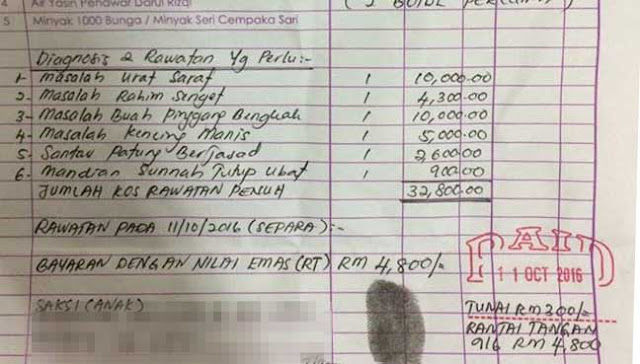 4 Air Yasin Penawar Darul Rizqi
5 Minyak 1000 Bunga / Minyak Seri Cempaka Sari
Diagnosis & Rawatan Yg Perlu:-
1- Masalah Urat Saraf 1 10,000.00
2- Masalah Rahim Senget 1 4,300.00
3- Masalah Buah Pinggang Bengkak 1 10,000.00
4- Masalah Kencing Manis 1 5,000.00
5- Santau Patung Berjasad 1 2,600.00
6- Mandian Sunnah Tutup Ubat 1 900.00
JUMLAH KOS RAWATAN PENUH 32,800.00
RAWATAN PADA 11/10/2016 (SEPARA):-
BAYARAN DENGAN NILAI EMAS (RT) RM 4,800/-
PAID
11 OCT 2016
SAKSI (ANAK)
TUNAI RM 300/-
RANTAI TANGAN
916 RM 4,800